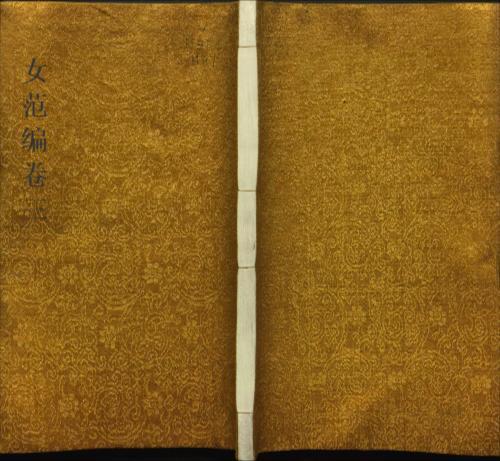 女范编卷